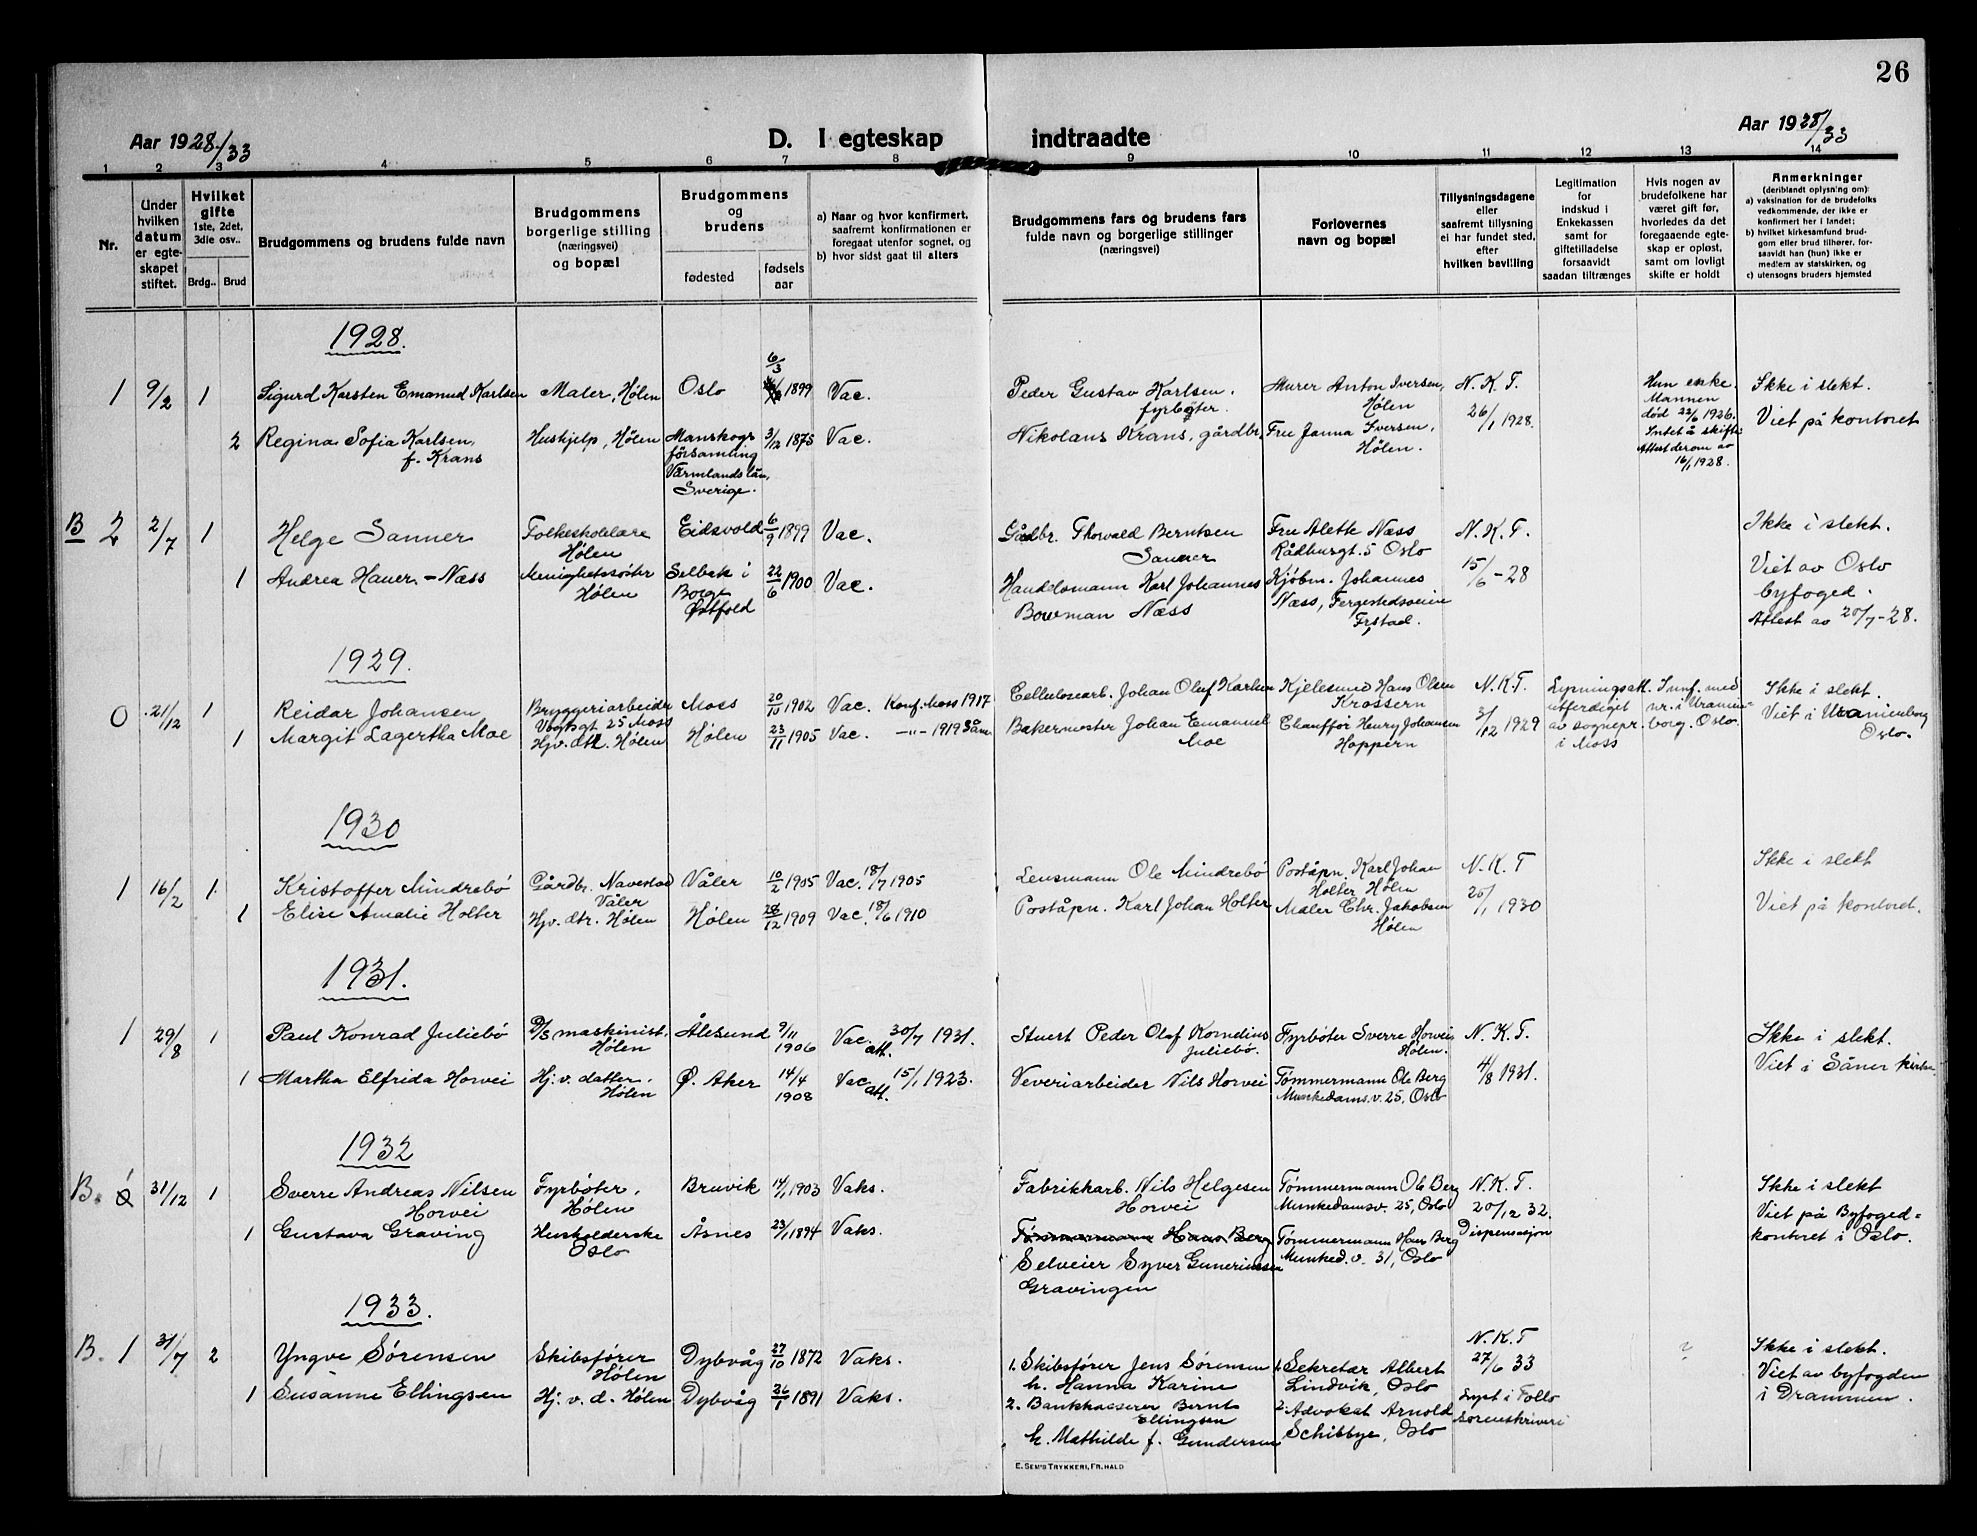 26
Aar 1928/33
D. I egteskap indtraadte
Aar 1928/33
1 2 3 4 5 6 7 8 9 10 11 12 13 14
Nr.
Under
hvilken
datum
er egte-
skapet
stiftet.
Hvilket
gifte
1ste, 2det,
3die osv..
Brdg.. Brud
Brudgommens og brudens fulde navn
Brudgommens
borgerlige stilling
(næringsvei)
og bopæl
Brudgommens
og
brudens
fødested
fødsels
aar
a) Naar og hvor konfirmert,
saafremt konfirmationen er
foregaat utenfor sognet, og
b) hvor sidst gaat til alters
Brudgommens fars og brudens fars
fulde navn og borgerlige stillinger
(næringsvei)
Forlovernes
navn og bopæl
Tillysningsdagene
eller
saafremt tillysning
ei har fundet sted,
efter
hvilken bavilling
Legitimation
for
indskud i
Enkekassen
samt for
giftetilladelse
forsaavidt
saadan tiltrænges
Hvis nogen av
brudefolkene har
været gift før,
hvorledes da det
foregaaende egte-
skap er opløst,
samt om lovligt
skifte er holdt
Anmerkninger
(deriblandt oplysning om):
a) vaksination for de brudefolks
vedkommende, der ikke er
konfirmert her i landet;
b) hvilket kirkesamfund brud-
gom eller brud tilhører, for-
saavidt han (hun) ikke er
medlem av statskirken, og
c) utensogns bruders hjemsted
1928.
1 9/2 1 Sigurd Karsten Emanuel Karlsen
Maler, Hølen
Oslo
6/3 1899
Vac.
Peder Gustav Karlsen.
fyrbøter.
Murer Anton Iversen,
Hølen
N. K. T.
26/1 1928.
Hun enke.
Mannen
død 22/6 1926.
Intet å skifte
Attest derom av
16/1 1928.
Ikke i slekt.
Viet på kontoret
2 Regina Sofia Karlsen,
f. Krans
Hushjelp, Hølen
Manskogs
församling
Värmlands län,
Sverige.
3/12 1875
Vac.
Nikolaus Krans, gårdbr.
Fru Janna Iversen,
Hølen.
B 2 2/7 1 Helge Sanner
Folkeskolelære
Hølen
Eidsvold
6/9 1899
Vac.
Gårdbr. Thorvald Berntsen
Sanner
Fru Alette Næss
Rådhusgt. 5 Oslo
N. K. T.
15/6 - 28
Ikke i slekt.
Viet av Oslo
byfoged.
Attest av 20/7 - 28.
1 Andrea Hauer - Næss
Menighetssøster
Hølen
Selbak i
Borge
Østfold
22/6 1900
Vac.
Handelsmann Karl Johannes
Bowman Næss
Kjøbm. Johannes
Næss, Fergestedsveien
Fr.stad.
1929.
0 21/12 1 Reidar Johansen
Bryggeriarbeider
Vogtsgt 25 Moss
Moss
20/10 1902
Vac. Konf. Moss 1917
Cellulosearb. Johan Oluf Karlsen
Kjelesmed Hans Olsen
Krossern
N. K. T.
3/12 1929
Lysningsatt.
utferdiget
av sognepr.
i Moss
Innf. med
nr. i Uranien-
borg. Oslo.
Ikke i slekt.
Viet i Uranienborg
Oslo.
1 Margit Lagertha Moe
Hjv. dtr. Hølen
Hølen
23/11 1905
Vac. -"- 1919 Sån.
Bakermester Johan Emanuel
Moe
Chauffør Henry Johansen
Hoppern
1930
1 16/2 1 Kristoffer Mindrebø
Gårdbr. Navestad
Våler
Våler
10/2 1905
Vac. 18/7 1905
Lensmann Ole Mindrebø
Poståpn. Karl Johan
Holter Hølen
N. K. T
20/1 1930
Ikke i slekt
Viet på kontoret.
1 Elise Amalie Holter
Hjv. dtr. Hølen
Hølen
28/12 1909
Vac. 18/6 1910
Poståpn. Karl Johan Holter
Maler Chr. Jakobsen
Hølen
1931.
1 29/8 1 Paul Konrad Juliebø
D/S maskinist.
Hølen
Ålesund
9/11
1906
Vac. att. 30/7 1931.
Stuert Peder Olaf Kornelius
Juliebø.
Fyrbøter Sverre Horvei
Hølen.
N. K. T.
4/8 1931.
Ikke i slekt.
Viet i Såner kirke.
1 Martha Elfrida Horvei
Hj. v. datter.
Hølen
Ø. Aker
14/4
1908
Vac. att. 15/1 1923.
Veveriarbeider Nils Horvei
Tømmermann Ole Berg
Munkedams. v. 25, Oslo
1932
B. 0 31/12 1 Sverre Andreas Nilsen
Horvei
Fyrbøter.
Hølen
Bruvik
14/1 1903
Vaks.
Fabrikkarb. Nils Helgesen
Horvei
Tømmermann Ole Berg
Munkedamsv. 25, Oslo
N. K. T.
20/12 32.
Dispensasjon
Ikke i slekt
Viet på Byfoged=
kontoret i Oslo.
1 Gustava Graving
Husholderske
Oslo
Åsnes
23/1 1894
Vaks.
Tømmermann Hans Berg
Selveier Syver Gunerius­sen
Gravingen
Tømmermann Hans Berg
Munked. v. 31, Oslo
1933.
B. 1 31/7 2 Yngve Sørensen
Skibsfører
Hølen
Dybvåg
27/10 1872
Vaks.
1. Skibsfører Jens Sørensen
h. Hanna Karine
1. Sekretær Albert
Lindvik, Oslo
N. K. T
27/6 33
Lyst i Follo
sorenskriveri
?
Ikke i slekt.
Viet av byfogden
i Drammen.
1 Susanne Ellingsen
Hj. v. d. Hølen
Dybvåg
26/1 1891
Vaks.
2. Bankkasserer Bernt
Ellingsen
h. Mathilde f. Gundersen
2. Advokat Arnold
Schibbye, Oslo
E. SEM'S TRYKKERI, FR.HALD